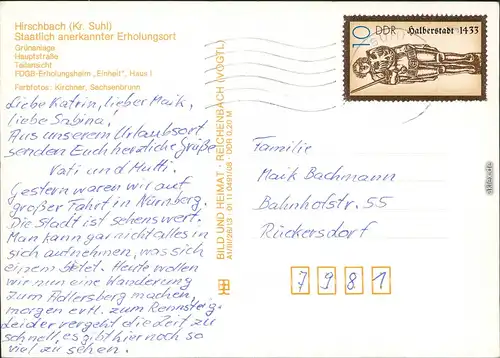 Hirschbach (Kr. Suhl)
Staatlich anerkannter Erholungsort
Grünanlage
Hauptstraße
Teilansicht
FDGB-Erholungsheim „Einheit“, Haus I
Farbfotos: Kirchner, Sachsenbrunn
Liebe Katrin, lieber Maik,
liebe Sabina!
Aus unserem Urlaubsort
senden Euch herzliche Grüße
Vati und Mutti.
Gestern waren wir auf
großer Fahrt in Nürnberg.
Die Stadt ist sehenswert.
Man kann gar nicht alles in
sich aufnehmen, was sich
einem bietet. Heute wollen
wir nun eine Wanderung
zum Adlersberg machen,
morgen evtl. zum Rennsteig.
Leider vergeht die Zeit zu
schnell, es gibt hier noch so
viel zu sehen.
BILD UND HEIMAT · REICHENBACH (VOGTL)
A1/III/26/13 01 11 0491/08 · DDR 0,20 M
10 DDR Halberstadt 1433
Familie
Maik Bachmann
Bahnhofstr. 55
Rückersdorf
7981